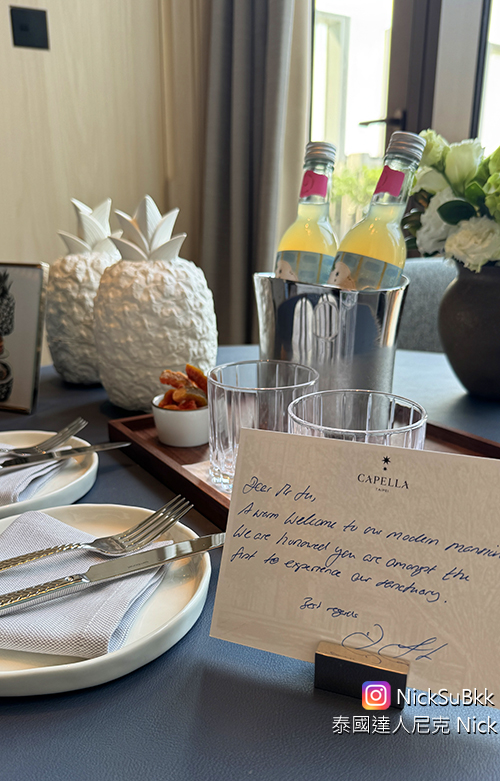 CAPELLA
TAIPEI
Dear Mr Su,
A warm welcome to our modern mansion
We are honoured you are amongst the
first to experience our sanctuary.
Best regards
NickSuBkk
泰國達人尼克 Nick